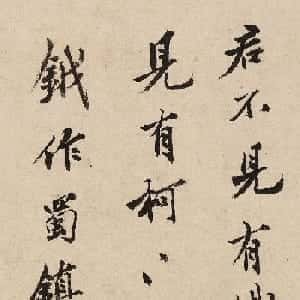 君不見有
見有柯
鉞作蜀鎮